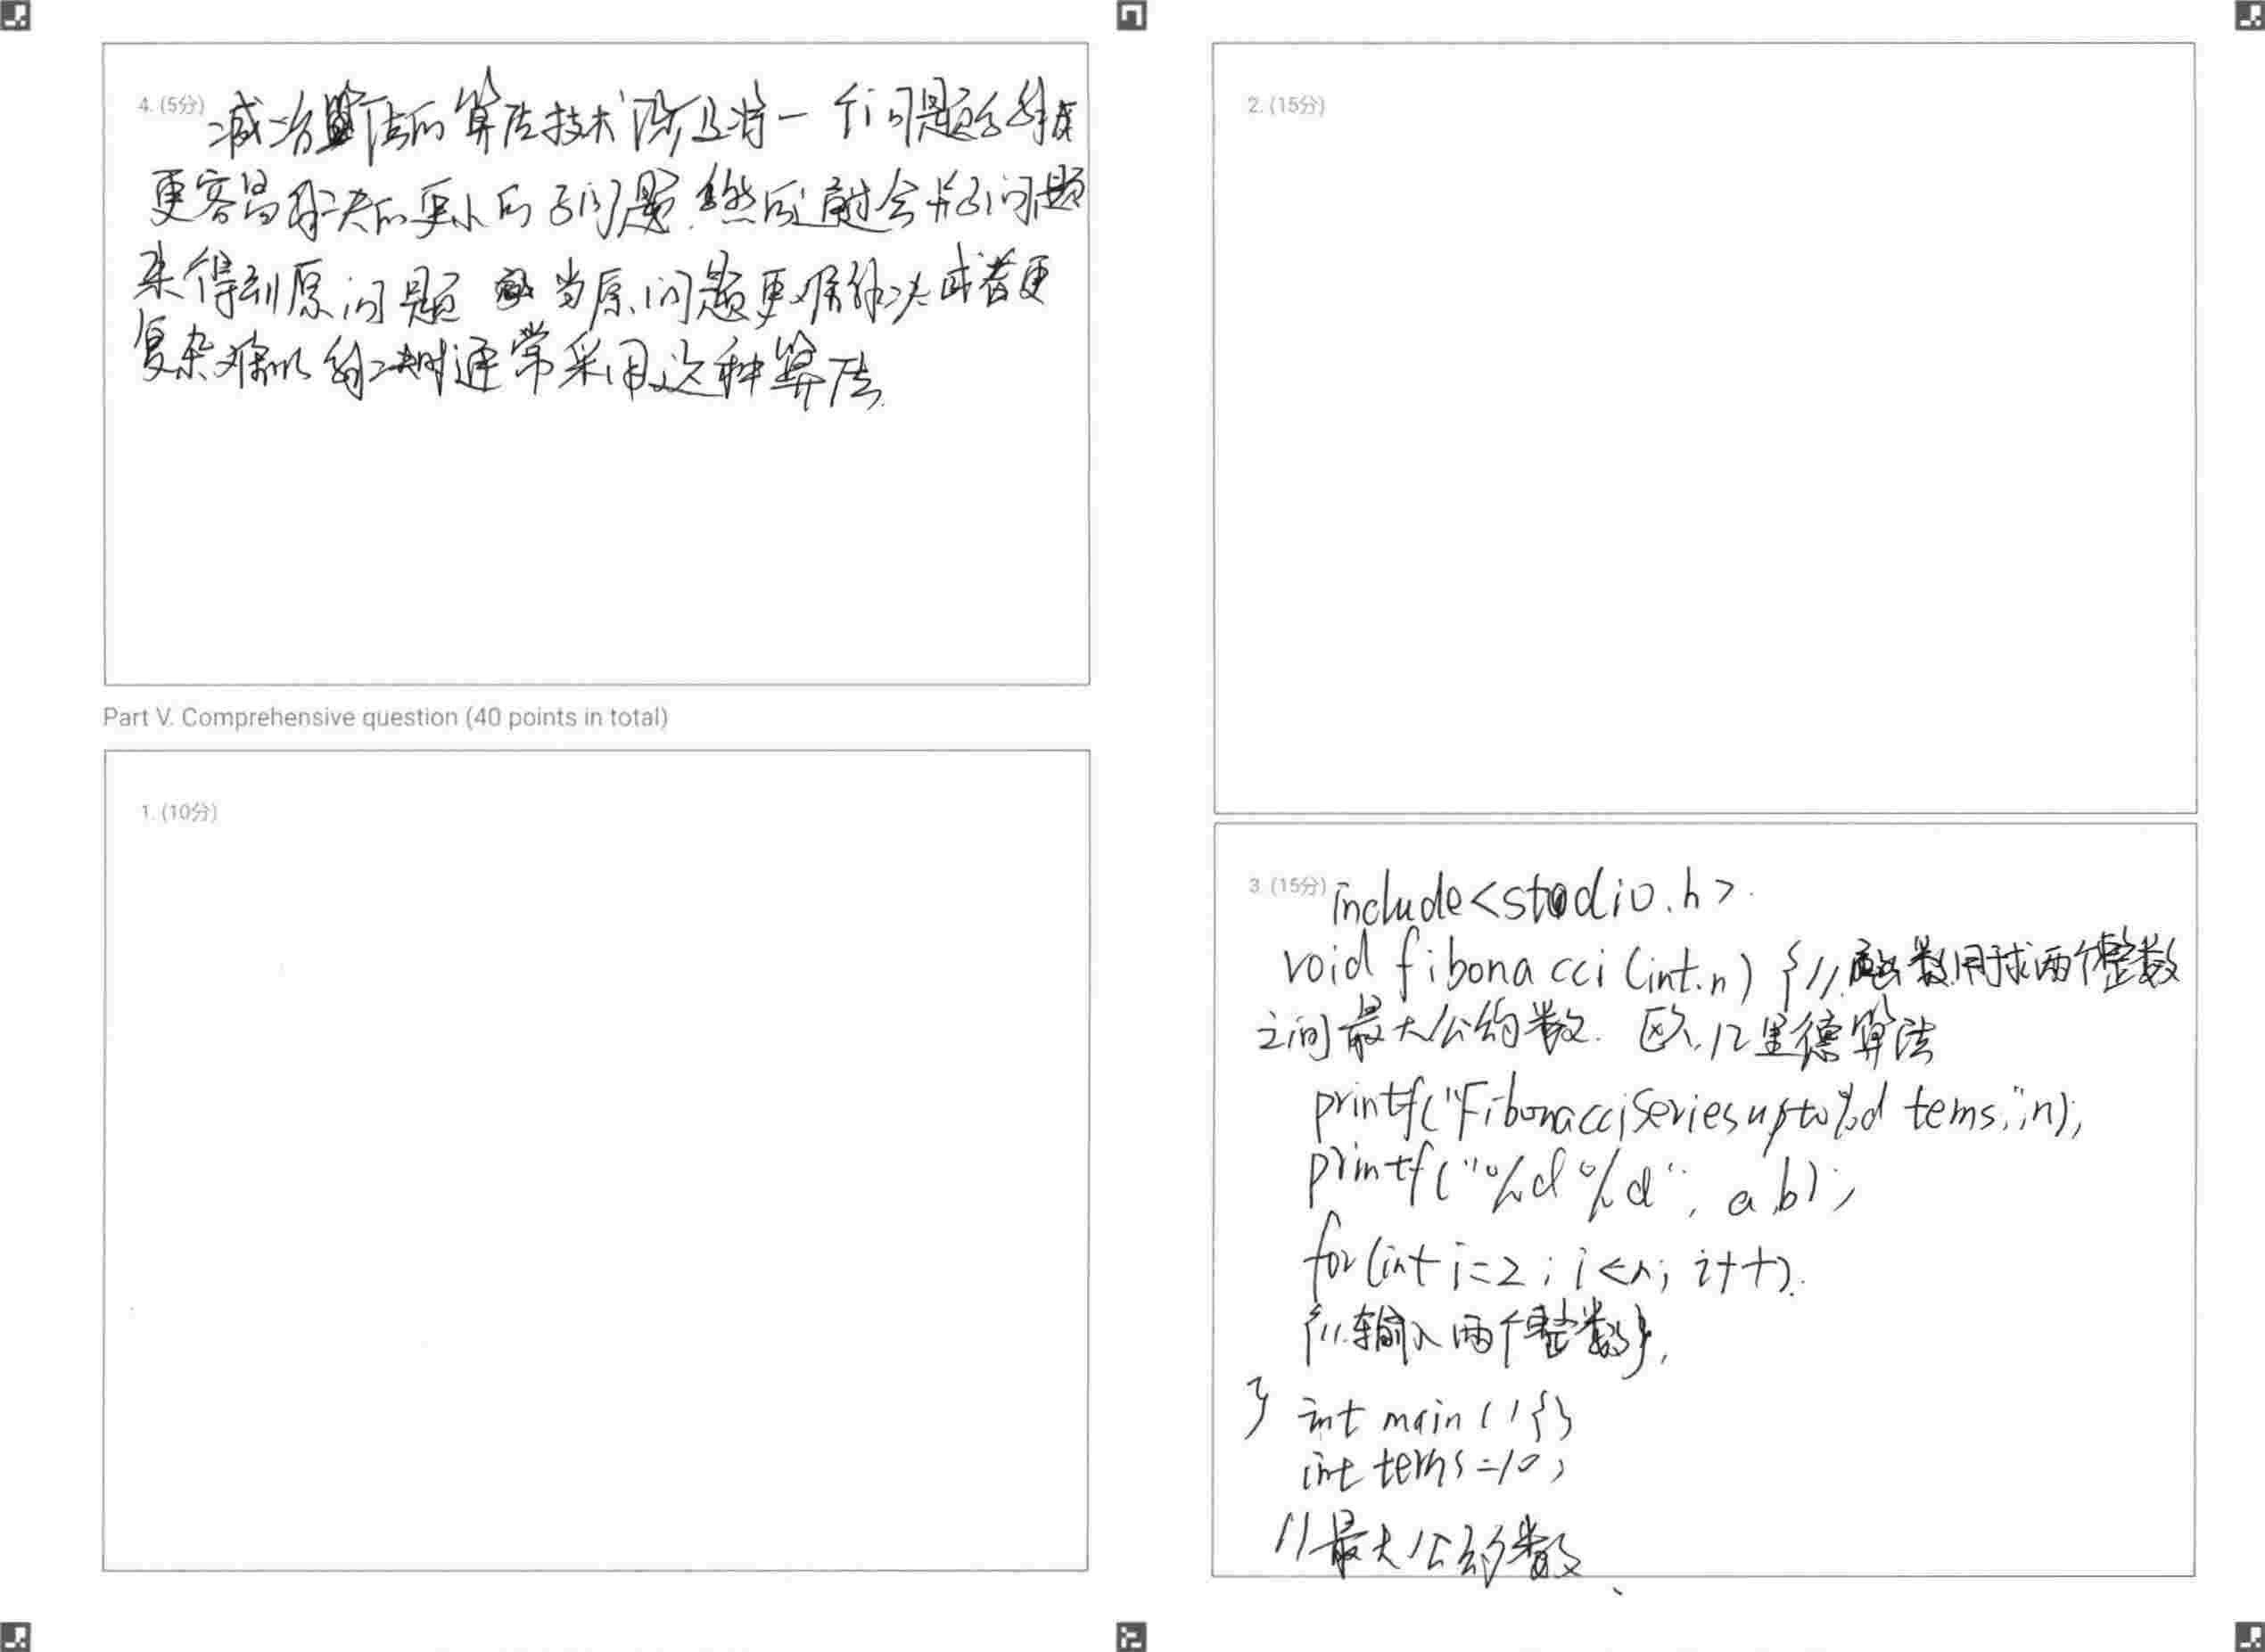 4. (5分) 减治算法的算法技术 将一个问题
更容易解决的更小的子问题.然后通过合并子问题
来得到原问题 当原问题更难解决或者更
复杂难以解决时通常采用这种算法.
Part V. Comprehensive question (40 points in total)
1. (10分)
2. (15分)
3. (15分) include<stodio.h>.
void fibonacci (int.n) {//. 数用于求两个整数
之间最大公约数. 欧几里德算法
printf("FibonacciSeriesupto%d tems,",n);
printf("%d%d", a,b);
for(int i=2; i<n; i++).
{//.输入两个整数},
} int main(){}
int terms=10;
//最大公约数、